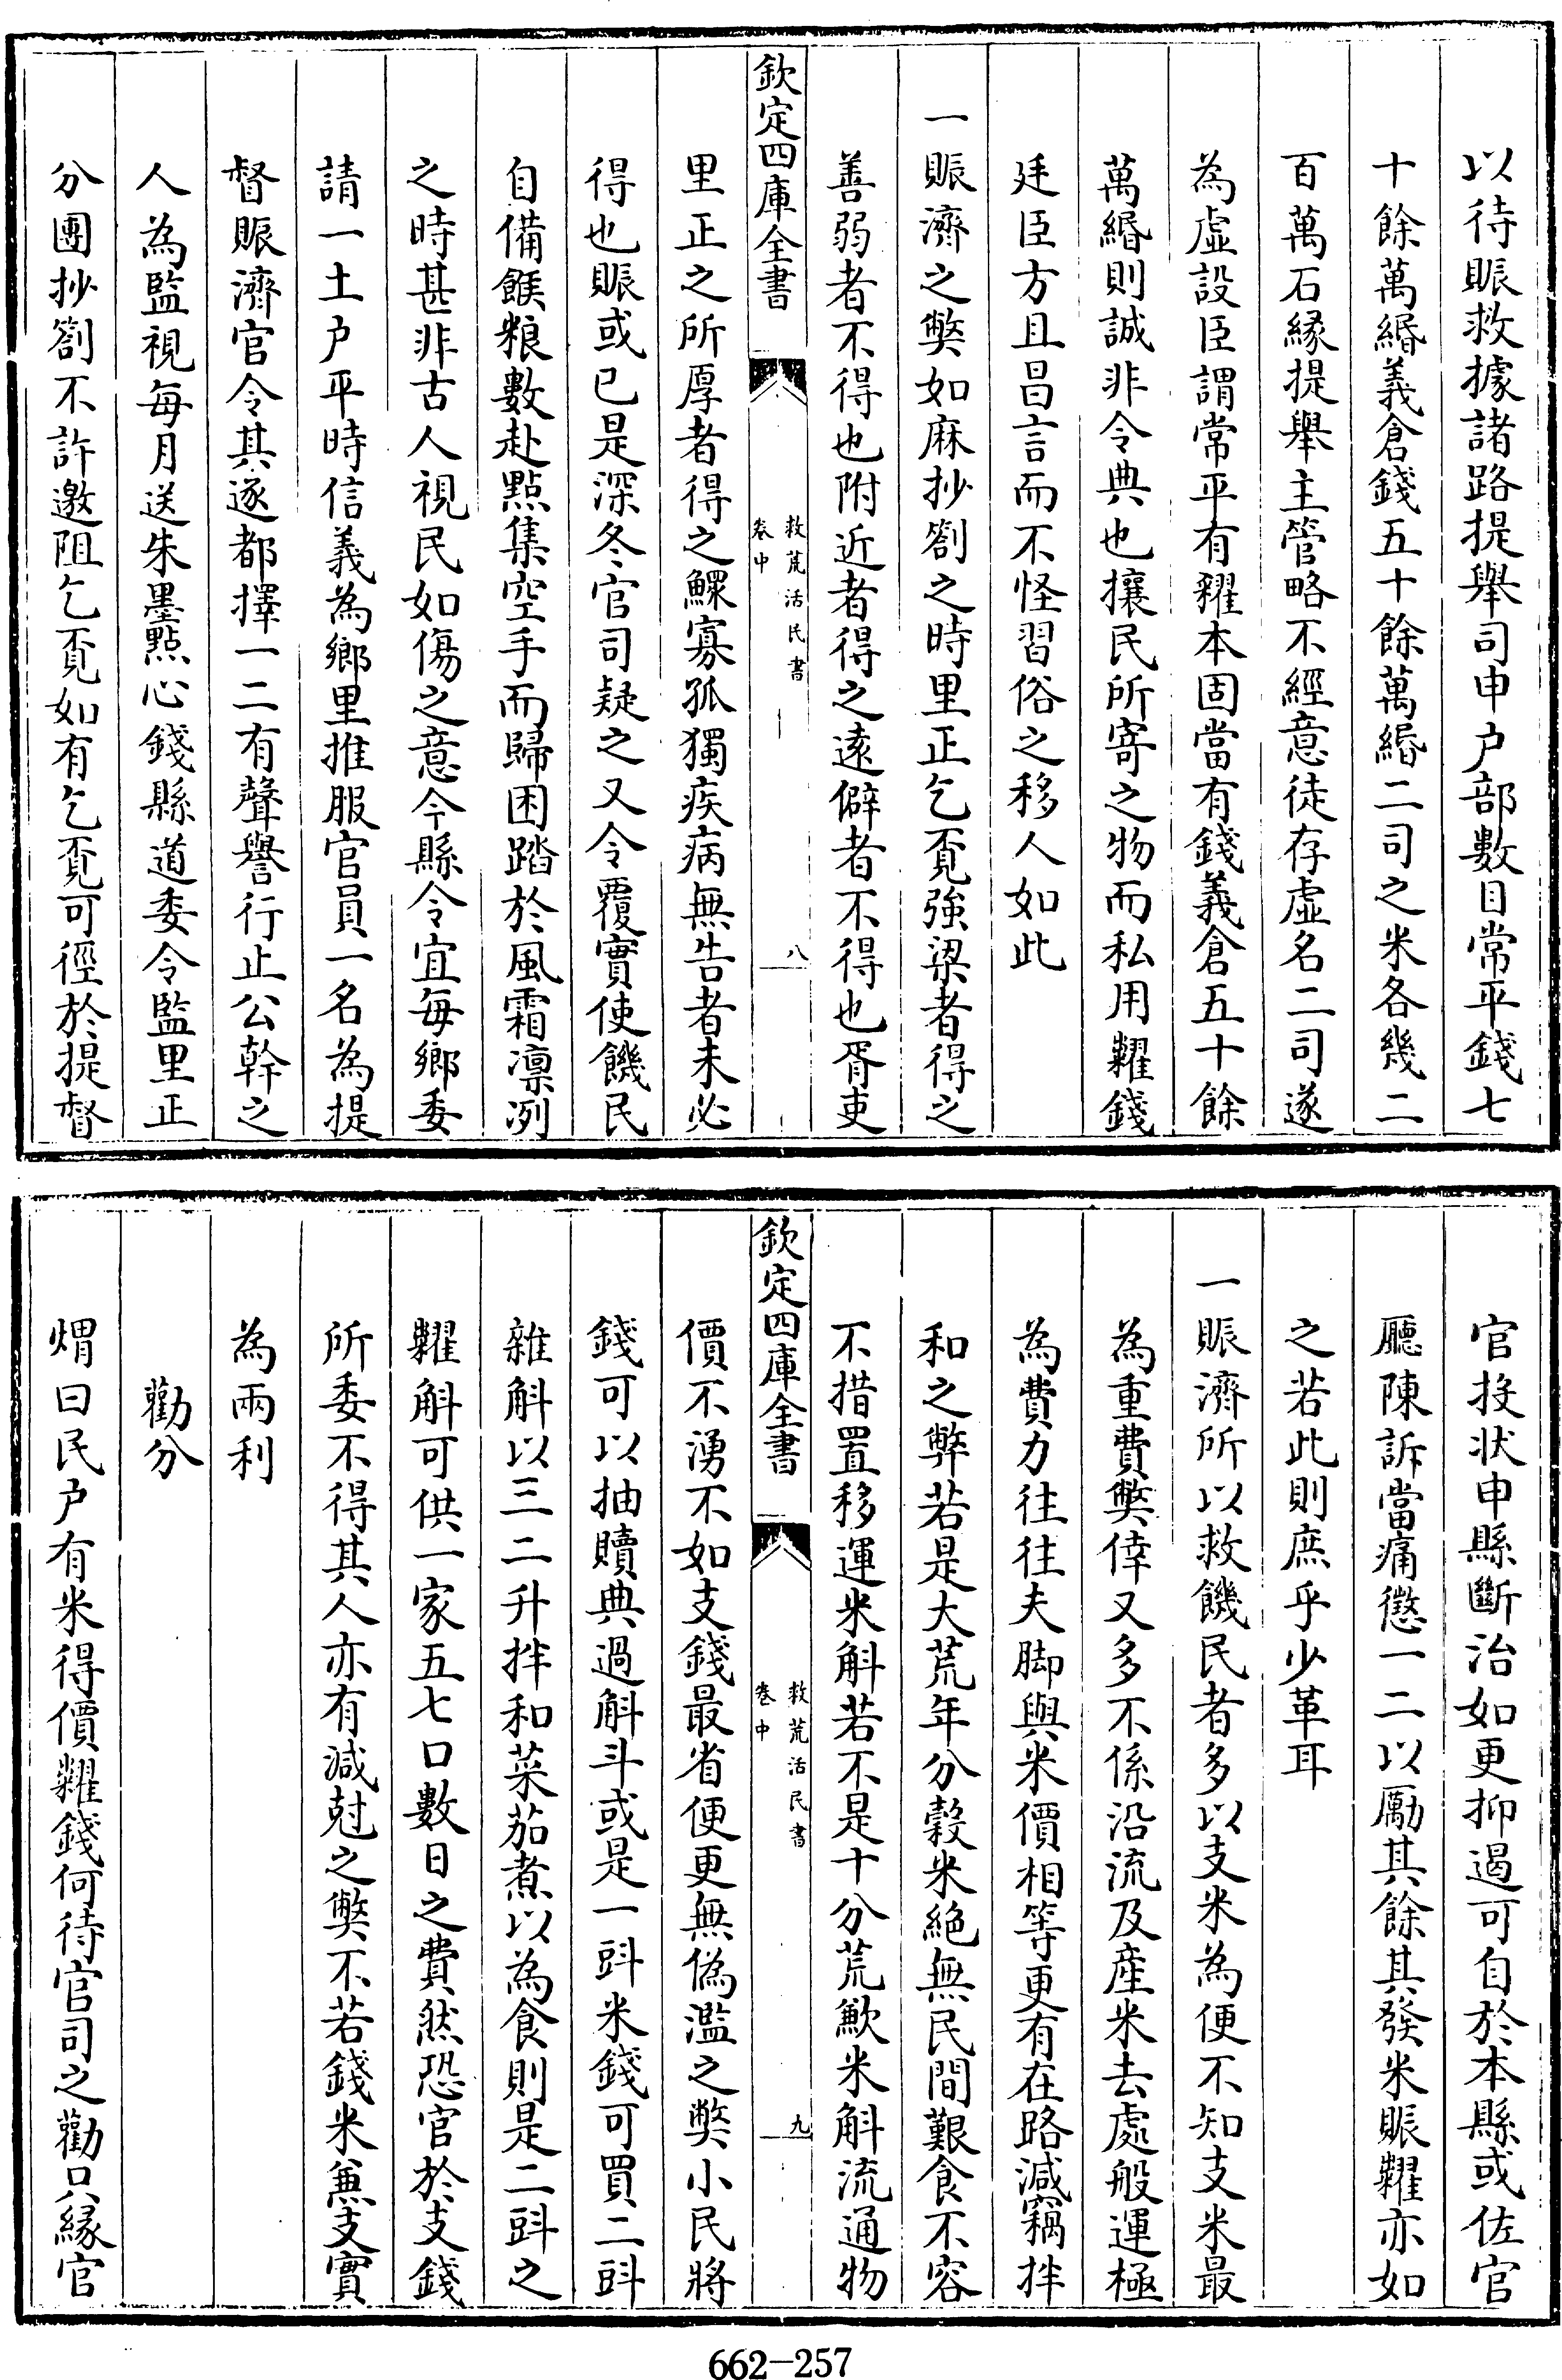 以待賑救據諸路提舉司申户部數目常平錢七
十餘萬緡義倉錢五十餘萬緡二司之米各幾二
百萬石緣提舉主管略不經意徒存虚名二司遂
為虚設臣謂常平有糴本固當有錢義倉五十餘
萬緡則誠非令典也攘民所寄之物而私用糶錢
廷臣方且昌言而不怪習俗之移人如此
一賑濟之弊如麻抄劄之時里正乞覔強梁者得之
善弱者不得也附近者得之逺僻者不得也胥吏
欽定四庫全書
救荒活民書
卷中
八
里正之所厚者得之鰥寡孤獨疾病無告者未必
得也賑或已是深冬官司疑之又令覆實使饑民
自備餱粮數赴點集空手而歸困踣於風霜凛冽
之時甚非古人視民如傷之意今縣令宜每鄉委
請一土户平時信義為鄉里推服官員一名為提
督賑濟官令其逐都擇一二有聲譽行止公幹之
人為監視每月送朱墨點心錢縣道委令監里正
分團抄劄不許邀阻乞覔如有乞覔可徑於提督
官投狀申縣斷治如更抑遏可自於本縣或佐官
廳陳訴當痛懲一二以勵其餘其發米賑糶亦如
之若此則庶乎少革耳
一賑濟所以救饑民者多以支米為便不知支米最
為重費弊倖又多不係沿流及産米去處般運極
為費力往往夫脚與米價相等更有在路減竊拌
和之弊若是大荒年分榖米絕無民間艱食不容
不措置移運米斛若不是十分荒歉米斛流通物
欽定四庫全書
救荒活民書
卷中
九
價不湧不如支錢最省便更無偽濫之弊小民將
錢可以抽贖典過斛斗或是一㪷米錢可買二㪷
雜斛以三二升拌和菜茄煮以為食則是二㪷之
糶斛可供一家五七口數日之費然恐官於支錢
所委不得其人亦有減尅之弊不若錢米兼支實
為兩利
勸分
煟曰民户有米得價糶錢何待官司之勸只緣官
662—257